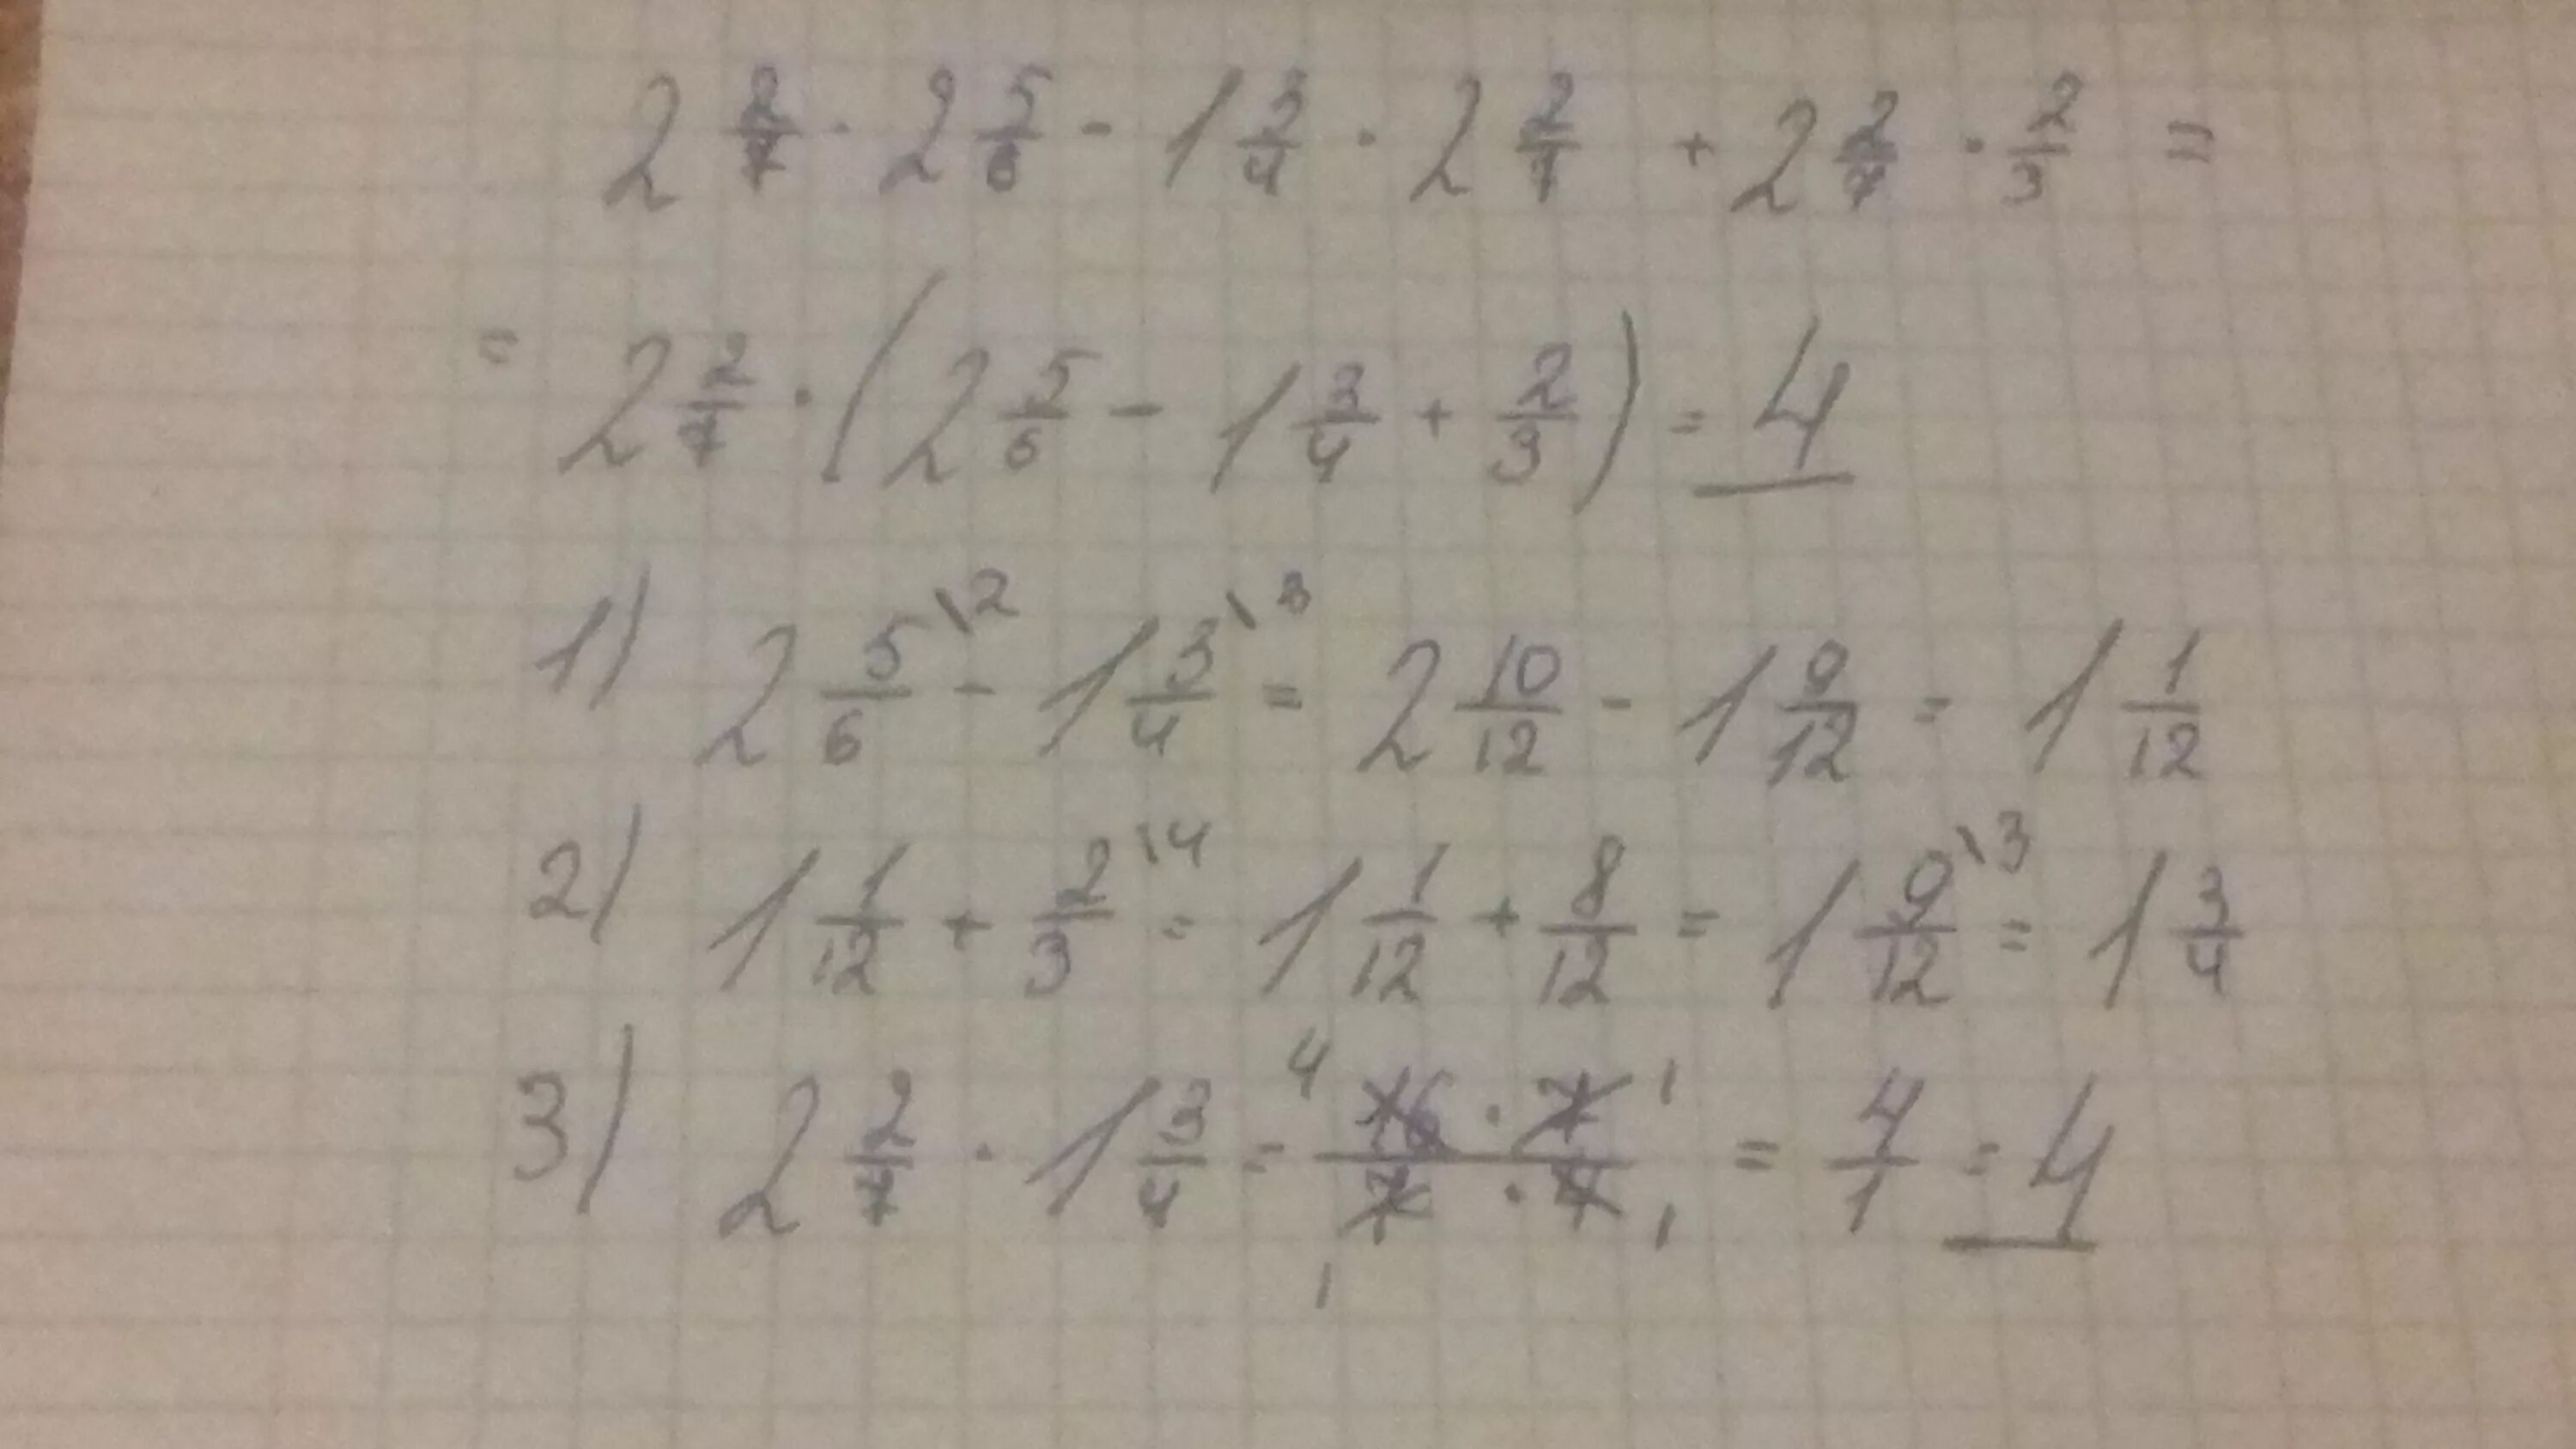 2 2/7 · 2 5/6 - 1 3/4 · 2 2/7 + 2 2/7 · 2/3 =
= 2 2/7 · (2 5/6 - 1 3/4 + 2/3) = 4
1) 2 5/6 \2 - 1 3/4 \3 = 2 10/12 - 1 9/12 = 1 1/12
2) 1 1/12 + 2/3 \4 = 1 1/12 + 8/12 = 1 9/12 \3 = 1 3/4
3) 2 2/7 · 1 3/4 = 4 16 · 7 1 / 1 7 · 4 1 = 4/1 = 4